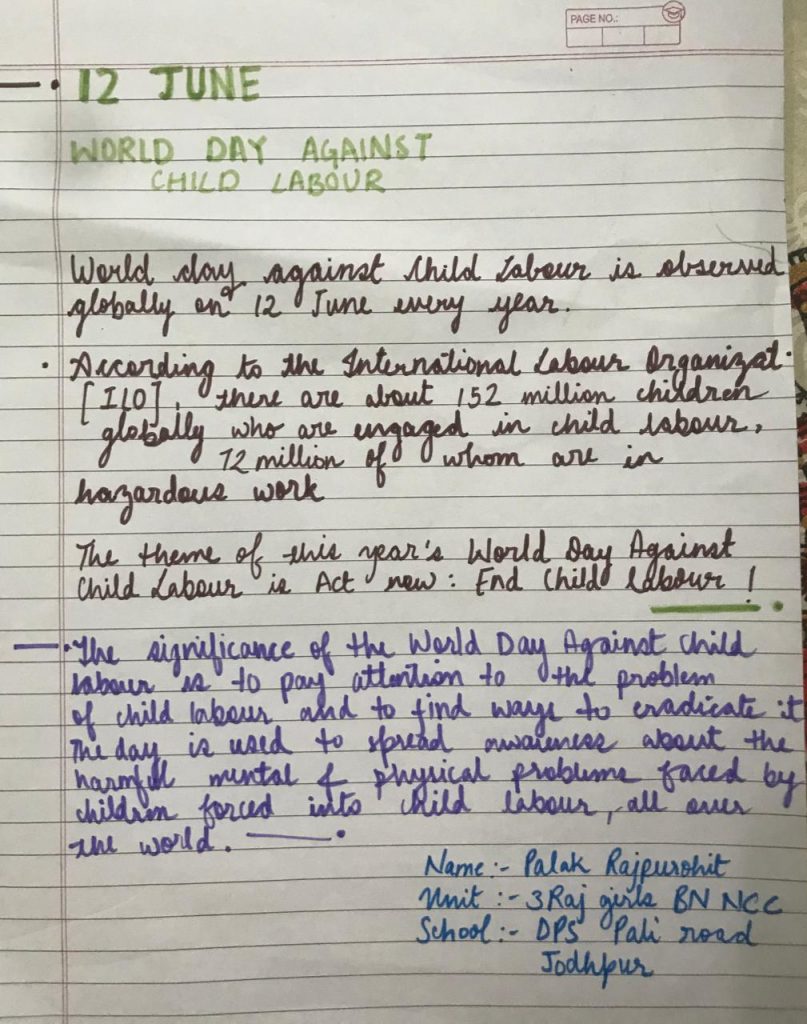 PAGE NO.:
12 JUNE
WORLD DAY AGAINST
CHILD LABOUR
World day against Child Labour is observed
globally on 12 June every year.
• According to the International Labour Organizat.
[ILO], there are about 152 million children
globally who are engaged in child labour,
72 million of whom are in
hazardous work
The theme of this year's World Day Against
Child Labour is Act now: End Child labour!
The significance of the World Day Against Child
labour is to pay attention to the problem
of child labour and to find ways to eradicate it
The day is used to spread awareness about the
harmful mental & physical problems faced by
children forced into child labour, all over
the world.
Name:- Palak Rajpurohit
Unit :- 3 Raj girls BN NCC
School:- DPS Pali road
Jodhpur